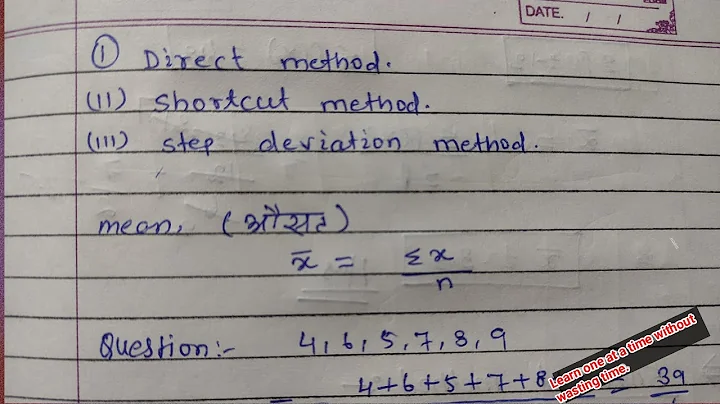 DATE. / /
① Direct method.
(11) Shortcut method.
(111) step deviation method.
mean, (औसत)
x̄ = Σx
n
Question:- 4, 6, 5, 7, 8, 9
4+6+5+7+8
= 39
Learn one at a time without
wasting time.